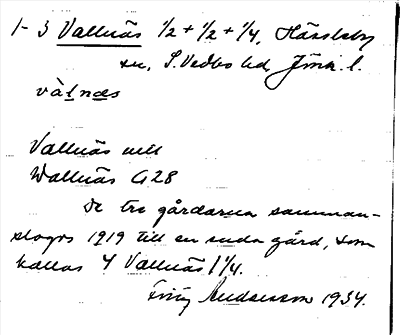 1-3 Vallnäs 1/2 + 1/2 + 1/4, Hässleby
sn, S. Vedbo hd, Jönk. l.
vàlnæs
Vallnäs mtl
Wallnäs G28
De tre gårdarna samman-
slogos 1919 till en enda gård, som
kallas 4 Vallnäs 1 1/4.
Andersson 1934.